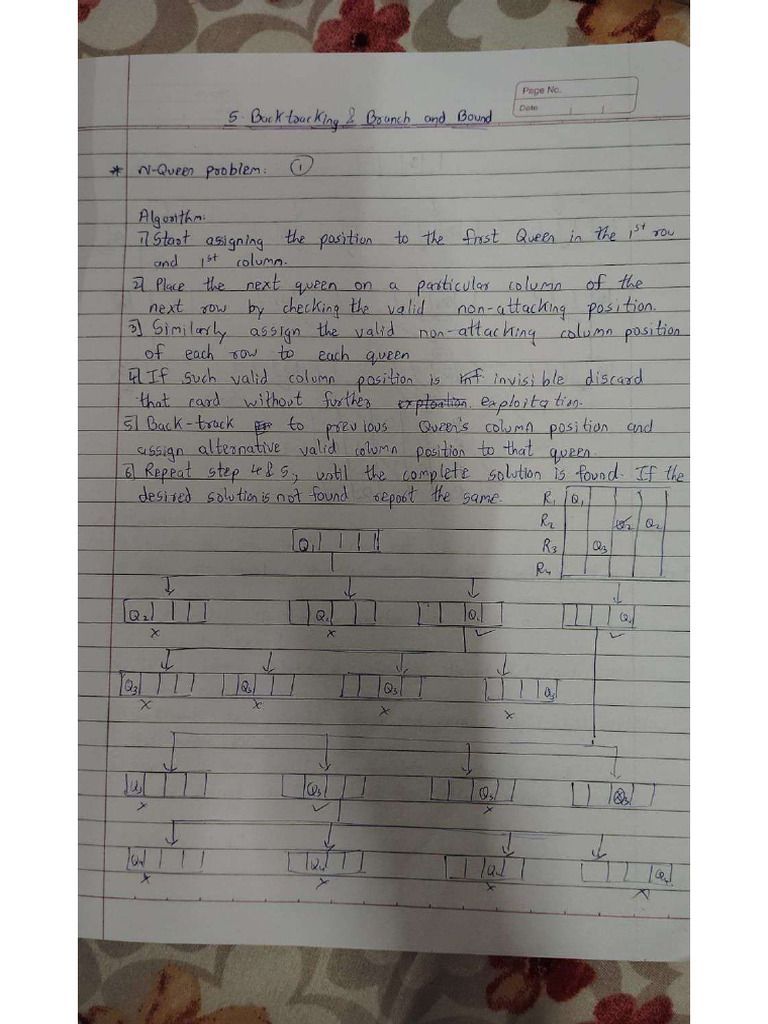 Page No.
Date
5. Backtracking & Branch and Bound
* N-Queen problem: ①
Algorithm:
1) Start asigning the position to the first Queen in the 1st row
and 1st column.
2) Place the next queen on a particular column of the
next row by checking the valid non-attacking position.
3) Similarly assign the valid non-attacking column position
of each row to each queen
4) If such valid column position is invisible discard
that card without further exploitation.
5) Back-track to previous Queen's column position and
assign alternative valid column position to that queen.
6) Repeat step 4 & 5, until the complete solution is found. If the
desired solution is not found report the same.
R1 Q1
R2 Q2 Q2
R3 Q3
R4
Q1
Q2 Q2 Q2 Q2
x x ✓ ✓
Q3 Q3 Q3 Q3
x x x x
Q3 Q3 Q3 Q3
x ✓ x
Q4 Q4 Q4 Q4
x x x x